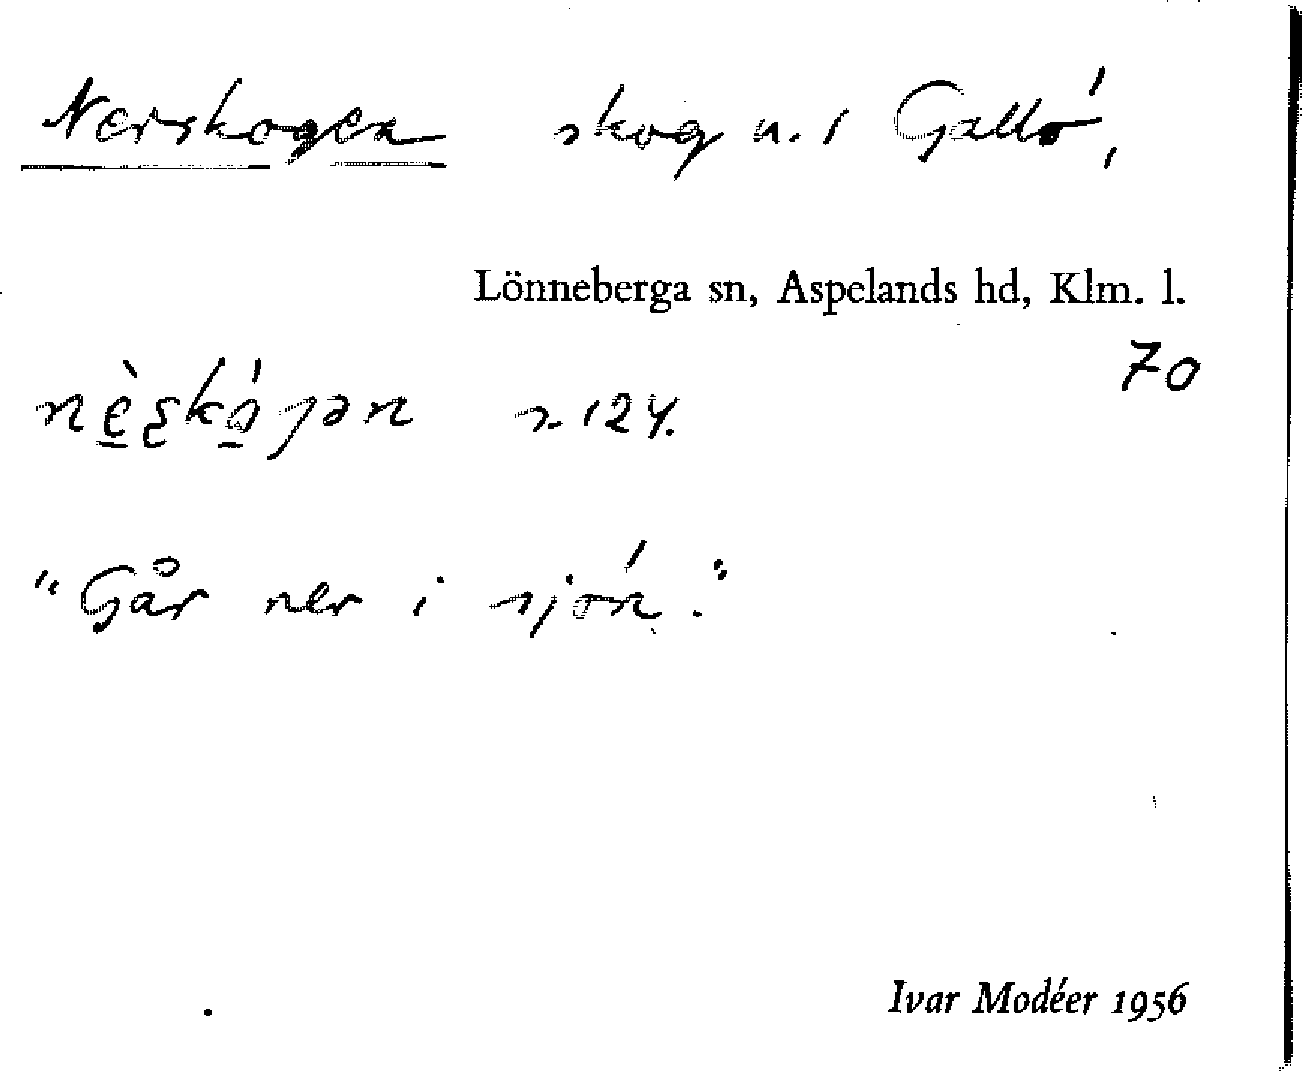 Nerskogen skog u. t Gallö,
Lönneberga sn, Aspelands hd, Klm. l.
70
s. 124.
"Går ner i sjön."
Ivar Modéer 1956